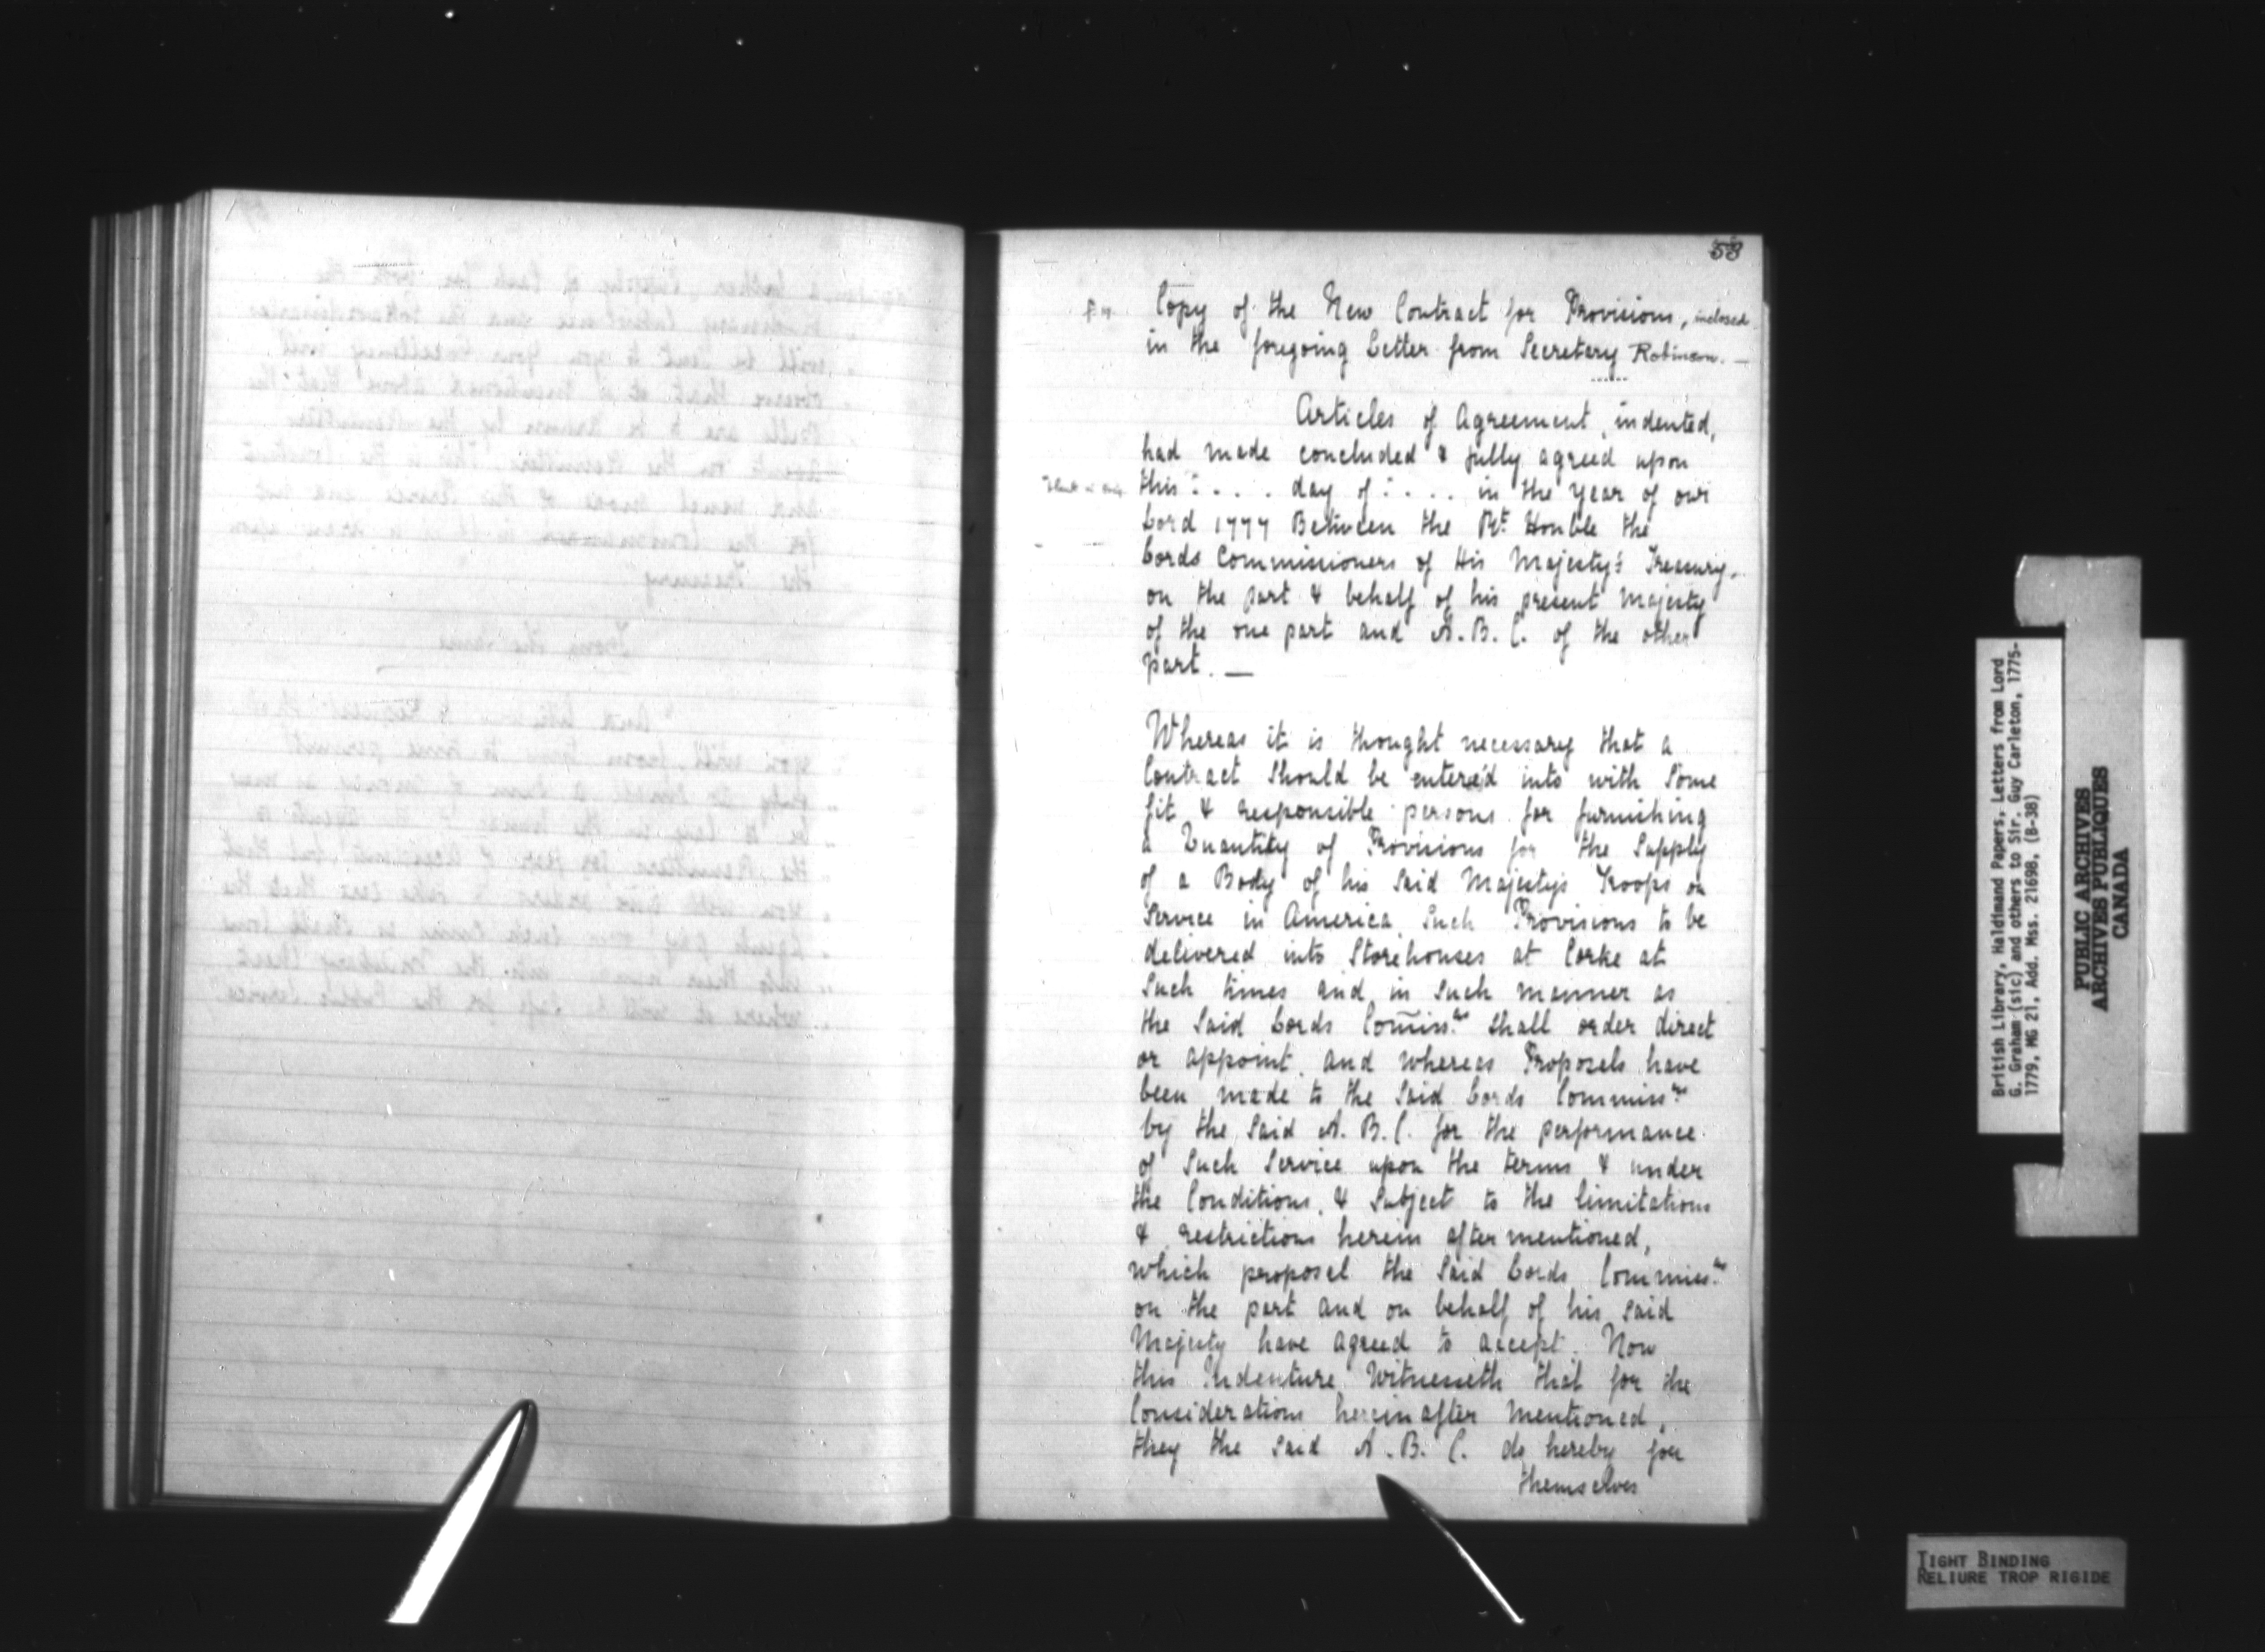 58
Copy of the New Contract for Provisions, inclosed
in the foregoing Letter from Secretary Robinson. —
Articles of Agreement, indented,
had made concluded & fully agreed upon
this : . . . day of : . . . in the Year of our
Lord 1777 Between the Rt. Honble the
Lords Commissioners of His Majesty's Treasury,
on the part & behalf of his present Majesty
of the one part and A. B. C. of the other
part. —
Whereas it is thought necessary that a
Contract Should be entered into with Some
fit & responsible persons for furnishing
a Quantity of Provisions for the Supply
of a Body of his Said Majestys Troops on
Service in America Such Provisions to be
delivered into Storehouses at Corke at
Such times and in Such manner as
the Said Lords Comissrs. Shall order direct
or appoint, and whereas Proposels have
been made to the Said Lords Commissrs.
by the Said A. B. C. for the performance
of Such Service upon the terms & under
the Conditions, & Subject to the limitations
& restrictions herein after mentioned,
which proposel the Said Lords Commissrs.
on the part and on behalf of his Said
Majesty have agreed to accept. Now
this Indenture Witnesseth that for the
Considerations herein after mentioned,
they the Said A. B. C. do hereby for
themselves
British Library, Haldimand Papers, Letters from Lord
G. Graham (sic) and others to Sir. Guy Carleton, 1775-
1779, MG 21, Add. Mss. 21698, (B-38)
PUBLIC ARCHIVES
ARCHIVES PUBLIQUES
CANADA
TIGHT BINDING
RELIURE TROP RIGIDE